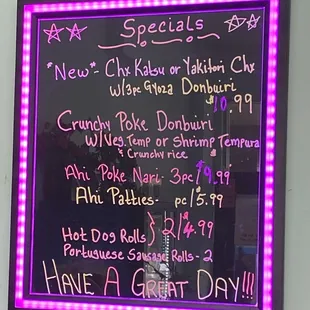 Specials
"New" - Chx Katsu or Yakitori Chx
w/3pc Gyoza Donbuiri
$10.99
Crunchy Poke Donbuiri
w/Veg. Temp or Shrimp Tempura
& Crunchy rice
Ahi Poke Nari - 3pc $9.99
Ahi Patties - pc/$5.99
Hot Dog Rolls } 2/$4.99
Portuguese Sausage Rolls - 2
HAVE A GREAT DAY!!!